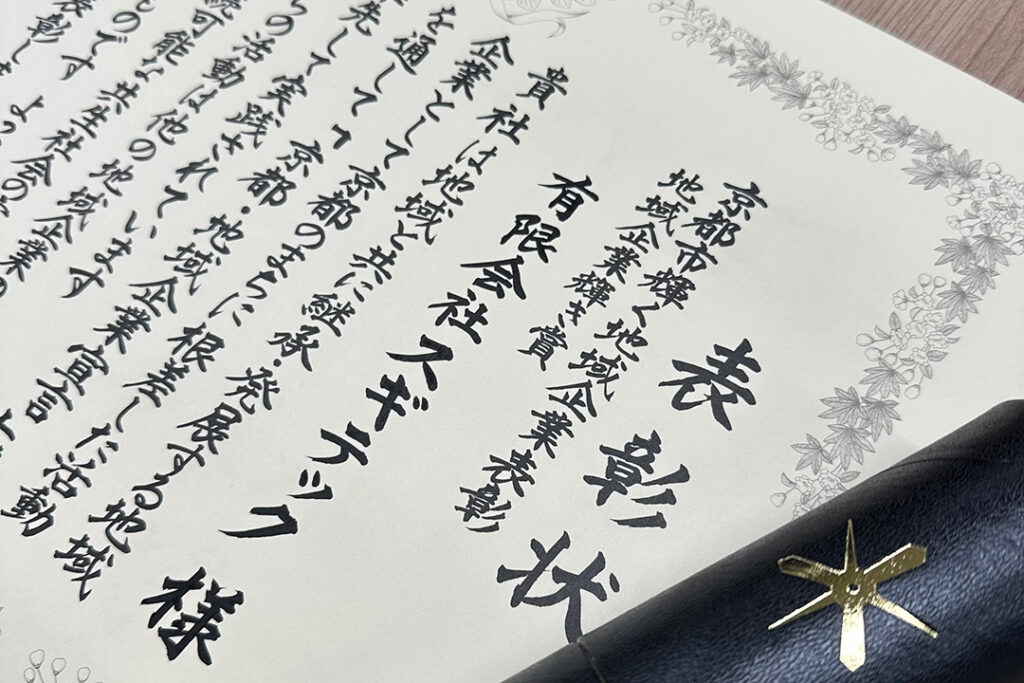 表彰状
京都市輝く地域企業表彰
地域企業輝き賞
有限会社スギテック 様
貴社は地域と共に継承・発展する地域
企業として京都のまちに根差した活動
を通して 京都・地域企業宣言
先して実践されています
の活動は他の地域企業の
続可能な共生社会の
のです よっ
表彰しま